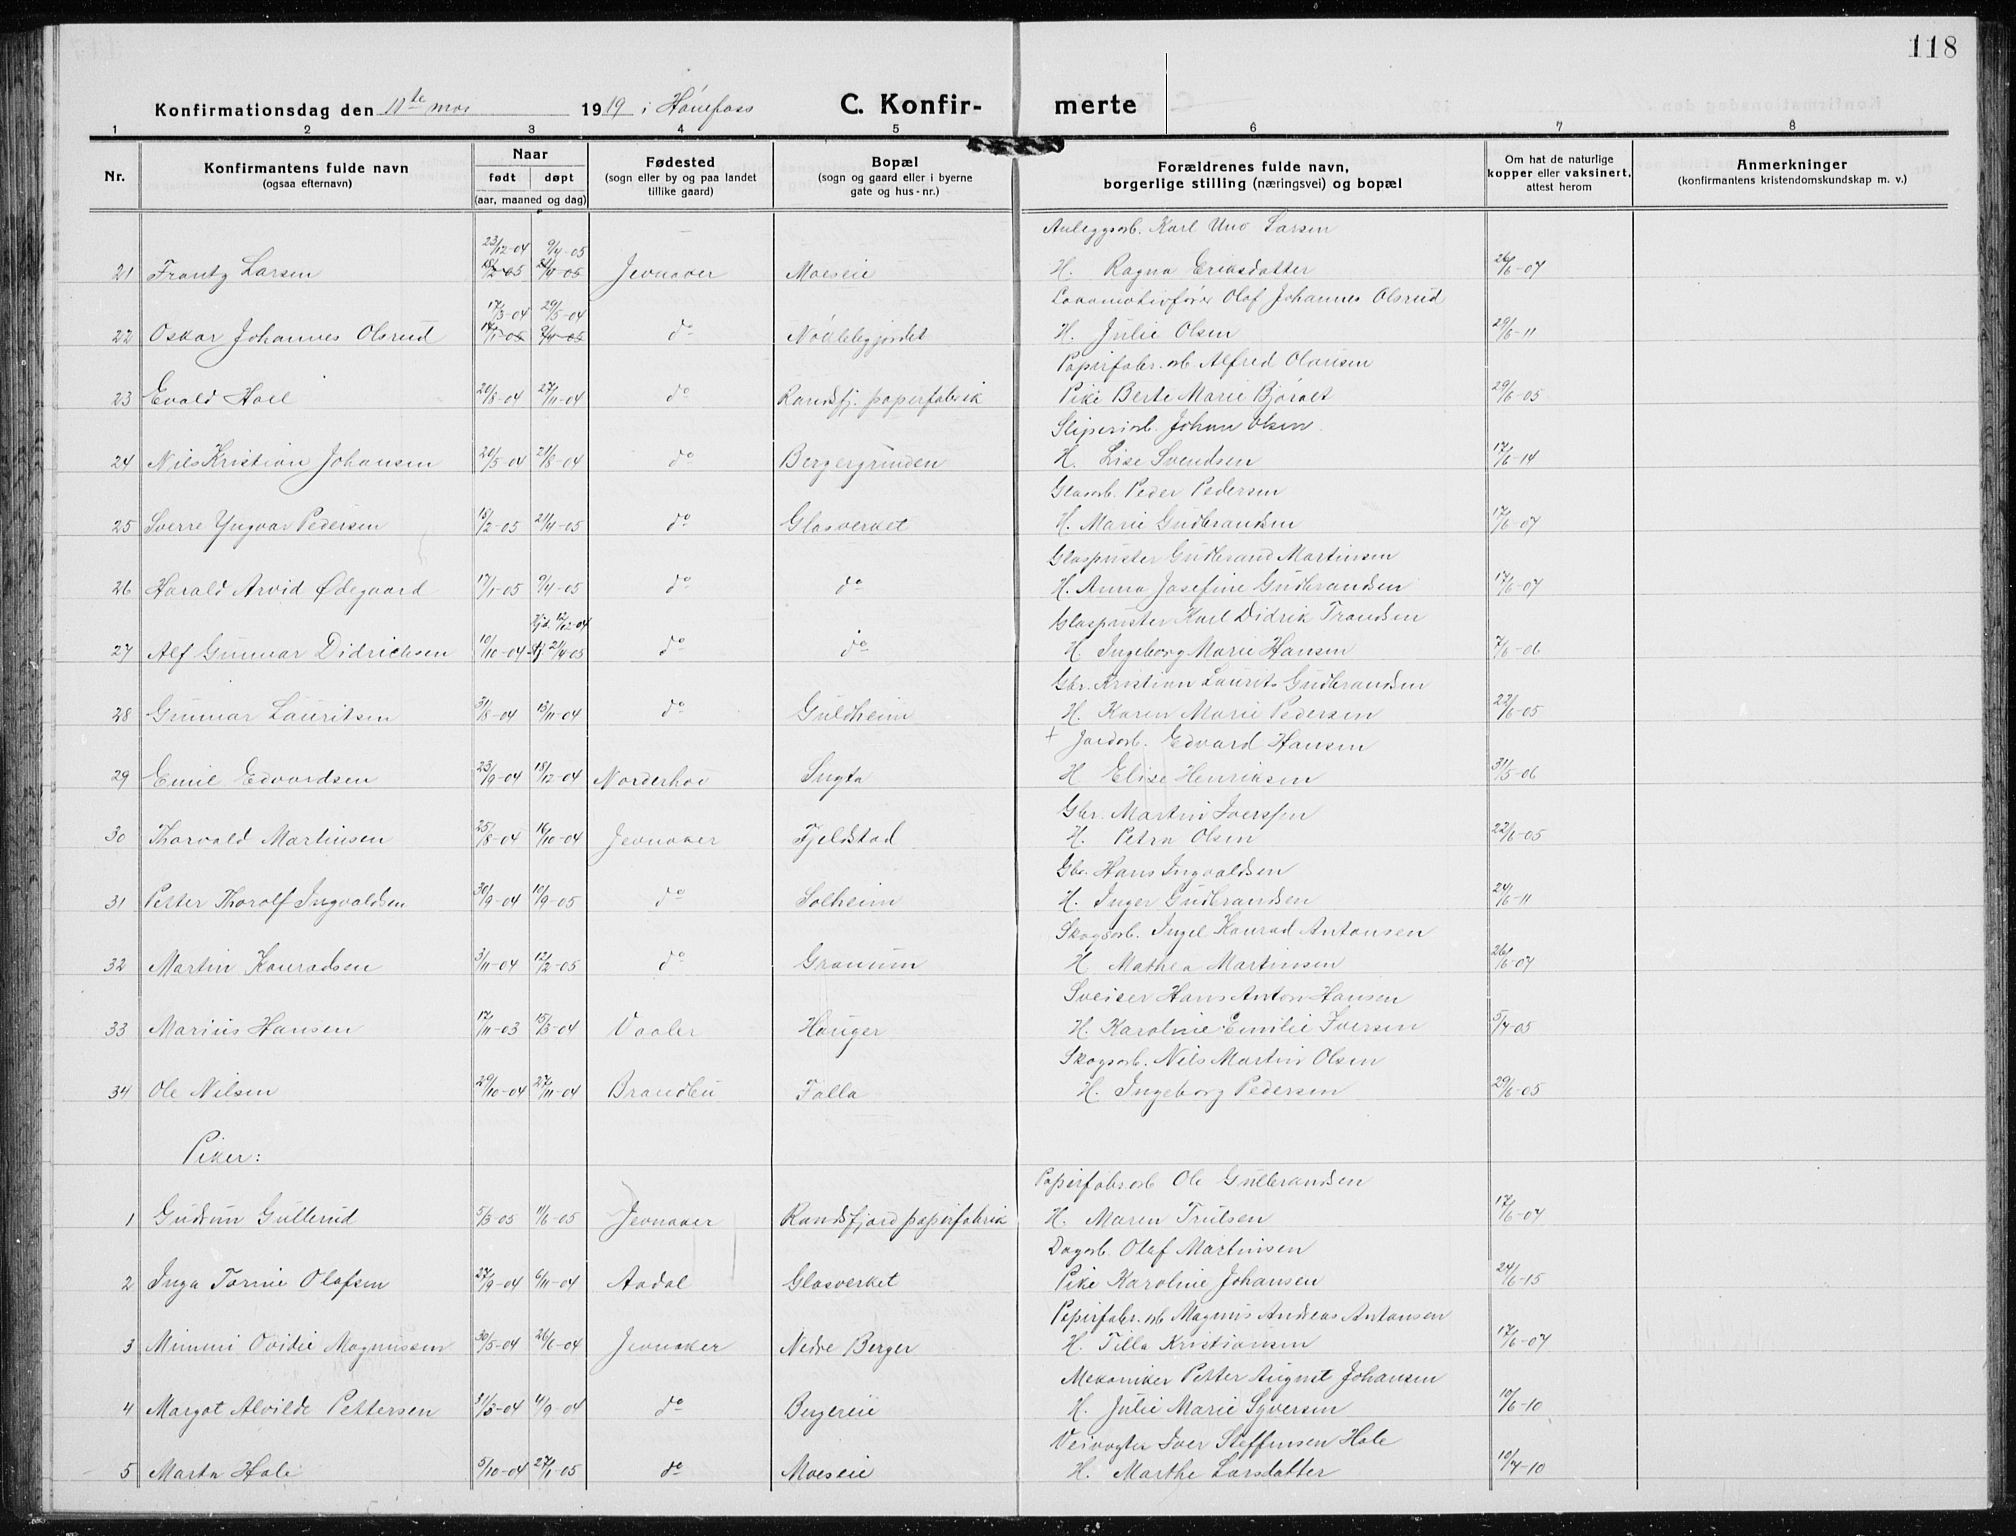 118
Konfirmationsdag den 11te mai 1919 i Hønefoss C. Konfir- merte
1 2 3 4 5 6 7 8
Nr. Konfirmantens fulde navn (ogsaa efternavn) Naar født døpt (aar, maaned og dag) Fødested (sogn eller by og paa landet tillike gaard) Bopæl (sogn og gaard eller i byerne gate og hus-nr.) Forældrenes fulde navn, borgerlige stilling (næringsvei) og bopæl Om hat de naturlige kopper eller vaksinert, attest herom Anmerkninger (konfirmantens kristendomskundskap m. v.)
23/12-04 9/4-05 Anleggsarb. Karl Uno Larsen
21 Frantz Larsen Jevnaker Moeseie H. Ragna Eriksdatter 26/6-07
17/3-04 29/5-04 Lokomotivfører Olaf Johannes Olsrud
22 Oskar Johannes Olsrud do Nøklebygjordet H. Julie Olsen 29/6-11
Papirfabr.arb. Alfred Olausen
23 Evald Hoel 20/8-04 27/11-04 do Randsfj. papirfabrik Pike Berte Marie Bjøralt 29/6-05
Sliperiarb. Johan Olsen
24 Nils Kristian Johansen 20/5-04 21/8-04 do Bergergrinden H. Lise Svendsen 17/6-14
Glasarb. Peder Pedersen
25 Sverre Yngvar Pedersen 15/2-05 21/4-05 do Glasverket H. Marie Gudbrandsen 17/6-07
Glaspuster Gudbrand Martinsen
26 Harald Arvid Ødegaard 17/1-05 9/4-05 do do H. Anna Josefine Gudbrandsen 17/6-07
Hjd. 12/12-04 Glaspuster Karl Didrik Trandsen
27 Alf Gunnar Didrichsen 10/10-04 21/4-05 do do H. Ingeborg Marie Hansen 7/6-06
Gbr. Kristian Laurits Gudbrandsen
28 Gunnar Lauritsen 31/8-04 13/11-04 do Guldheim H. Karen Marie Pedersen 22/6-05
+ Jordarb. Edvard Hansen
29 Emil Edvardsen 23/9-04 18/12-04 Norderhov Sugta H. Elise Henriksen 31/5-06
Gbr. Martin Iverssen
30 Thorvald Martinsen 25/8-04 16/10-04 Jevnaker Fjeldstad H. Petra Olsen 22/6-05
Gbr. Hans Ingvaldsen
31 Petter Thorolf Ingvaldsen 30/9-04 10/9-05 do Solheim H. Inger Gudbrandsen 24/6-11
Skogsarb. Ingel Konrad Antonsen
32 Martin Konradsen 3/11-04 12/2-05 do Granum H. Mathea Martinsen 26/6-07
Sveiser Hans Anton Hansen
33 Marius Hansen 17/11-03 15/3-04 Vaaler Hauger H. Karoline Emilie Iversen 5/7-05
Skogsarb. Nils Martin Olsen
34 Ole Nilsen 29/10-04 27/11-04 Brandbu Falla H. Ingeborg Pedersen 29/6-05
Piker:
Papirfabr.arb. Ole Gulbrandsen
1 Gudrun Gullerud 5/3-05 11/6-05 Jevnaker Randsfjord papirfabrik H. Maren Trulsen 17/6-07
Dagarb. Olaf Martinsen
2 Inga Tomie Olafsen 27/9-04 6/11-04 Aadal Glasverket Pike Karoline Johansen 24/6-15
Papirfabr.arb Magnus Andreas Antonsen
3 Mimmi Ovidie Magnussen 30/5-04 26/6-04 Jevnaker Nedre Berger H. Tilla Kristiansen 17/6-07
Mekaniker Petter August Johansen
4 Margot Alvilde Pettersen 31/3-04 4/9-04 do Bergereie H. Julie Marie Syversen 10/6-10
Veivogter Iver Steffensen Hole
5 Marta Hole 5/10-04 27/1-05 do Moeseie H. Marthe Larsdatter 10/7-10